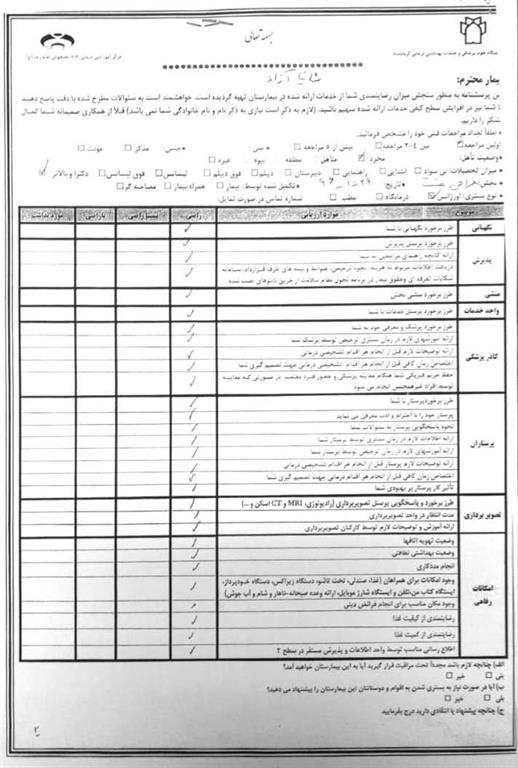 بسمه تعالی
بیمار محترم:
این پرسشنامه به منظور سنجش میزان رضایتمندی شما از خدمات ارائه شده در بیمارستان تهیه گردیده است. خواهشمند است به سئوالات مطرح شده با دقت پاسخ دهید
تا شما نیز در افزایش سطح کیفی خدمات ارائه شده سهیم باشید. (لازم به ذکر است نیازی به ذکر نام و نام خانوادگی شما نمی باشد) قبلاً از همکاری صمیمانه شما کمال
تشکر را داریم.
لطفاً تعداد مراجعات قبلی خود را مشخص فرمائید.
اولین مراجعه بین ۴-۲ مراجعه بیش از ۵ مراجعه سن: جنس: مذکر مونث
وضعیت تأهل: مجرد متأهل مطلقه بیوه غیره
میزان تحصیلات: بی سواد ابتدایی راهنمایی دبیرستان دیپلم فوق دیپلم لیسانس فوق لیسانس دکترا و بالاتر
بخش: تاریخ: تکمیل شده توسط: بیمار همراه بیمار مصاحبه گر
نوع بستری: اورژانس درمانگاه مطب شماره تماس در صورت تمایل:
موضوع موارد ارزیابی راضی نسبتاً راضی ناراضی مورد نداشت
نگهبانی طرز برخورد نگهبانی با شما
پذیرش طرز برخورد پرسنل پذیرش
ارائه کتابچه راهنمای مراجعین به شما
منشی طرز برخورد منشی بخش
واحد خدمات طرز برخورد پرسنل خدمات با شما
کادر پزشکی طرز برخورد پزشک و معرفی خود به شما
ارائه آموزشهای لازم در زمان بستری ترخیص توسط پزشک شما
ارائه توضیحات لازم قبل از انجام هر اقدام تشخیصی درمانی
اختصاص زمان کافی قبل از انجام هر اقدام تشخیصی درمانی جهت تصمیم گیری شما
حفظ حریم فیزیکی شما هنگام معاینه پزشکی و حضور فرد معتمد در صورتی که معاینه
توسط افراد غیرهمجنس انجام می شود
پرستاران طرز برخورد پرستار با شما
پرستار خود را با احترام و ادب معرفی می نماید
نحوه پاسخگویی پرستار به سئوالات شما
ارائه اطلاعات لازم در زمان بستری توسط پرستار شما
ارائه آموزشهای لازم در زمان ترخیص توسط پرستار شما
ارائه توضیحات لازم پرستار قبل از انجام هر اقدام تشخیصی درمانی
اختصاص زمان کافی قبل از انجام هر اقدام درمانی جهت تصمیم گیری شما
تأثیر کار پرستار بر بهبودی شما
تصویر برداری طرز برخورد و پاسخگویی پرسنل تصویربرداری (رادیولوژی، MRI و CT اسکن و ...)
مدت انتظار در واحد تصویربرداری
ارائه آموزش و توضیحات لازم توسط کارکنان تصویربرداری
امکانات رفاهی وضعیت تهویه اتاقها
وضعیت بهداشتی نظافتی
انجام مددکاری
وجود امکانات برای همراهان (غذا، صندلی، تخت تاشو، دستگاه زیراکس، دستگاه خودپرداز،
ایستگاه کتاب من، تلفن و ایستگاه شارژ موبایل، ارائه وعده صبحانه-ناهار و شام و آب جوش)
وجود مکان مناسب برای انجام فرائض دینی
رضایتمندی از کیفیت غذا
رضایتمندی از کمیت غذا
اطلاع رسانی مناسب توسط واحد اطلاعات و پذیرش مستقر در سطح ۲
الف) چنانچه لازم باشد مجدداً تحت مراقبت قرار گیرید آیا به این بیمارستان خواهید آمد؟
بلی خیر
ب) آیا در صورت نیاز به بستری شدن به اقوام و دوستانتان این بیمارستان را پیشنهاد می دهید؟
بلی خیر
ج) چنانچه پیشنهاد یا انتقادی دارید درج بفرمایید